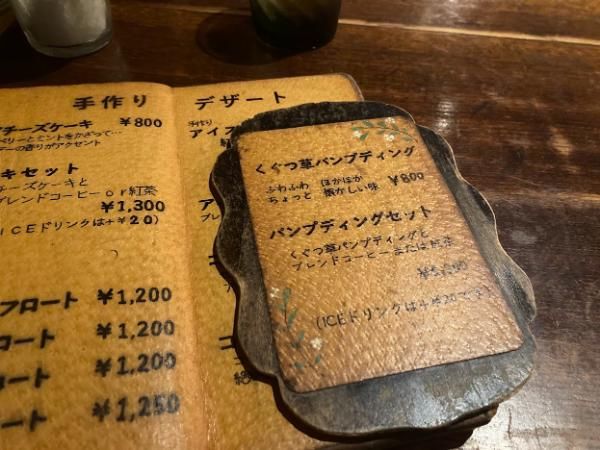 手作り デザート
チーズケーキ ¥800
ベリーとミントをかざって…
の香りがアクセント
キセット
チーズケーキと
ブレンドコーヒーor紅茶
¥1,300
(ICEドリンクは+¥20)
フロート ¥1,200
ート ¥1,200
ート ¥1,200
ート ¥1,250
手作り
アイス
くぐつ草パンプディング
ふわふわ ほかほか
ちょっと 懐かしい味 ¥800
パンプディングセット
くぐつ草パンプディングと
ブレンドコーヒーまたは紅茶
(ICEドリンクは+¥20です)